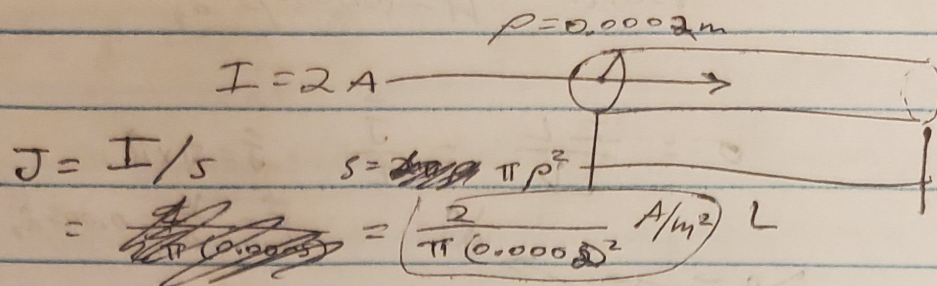 ρ = 0.0002m
I = 2 A
J = I/s s = πρ²
= = 2 / π (0.0002)² A/m² L